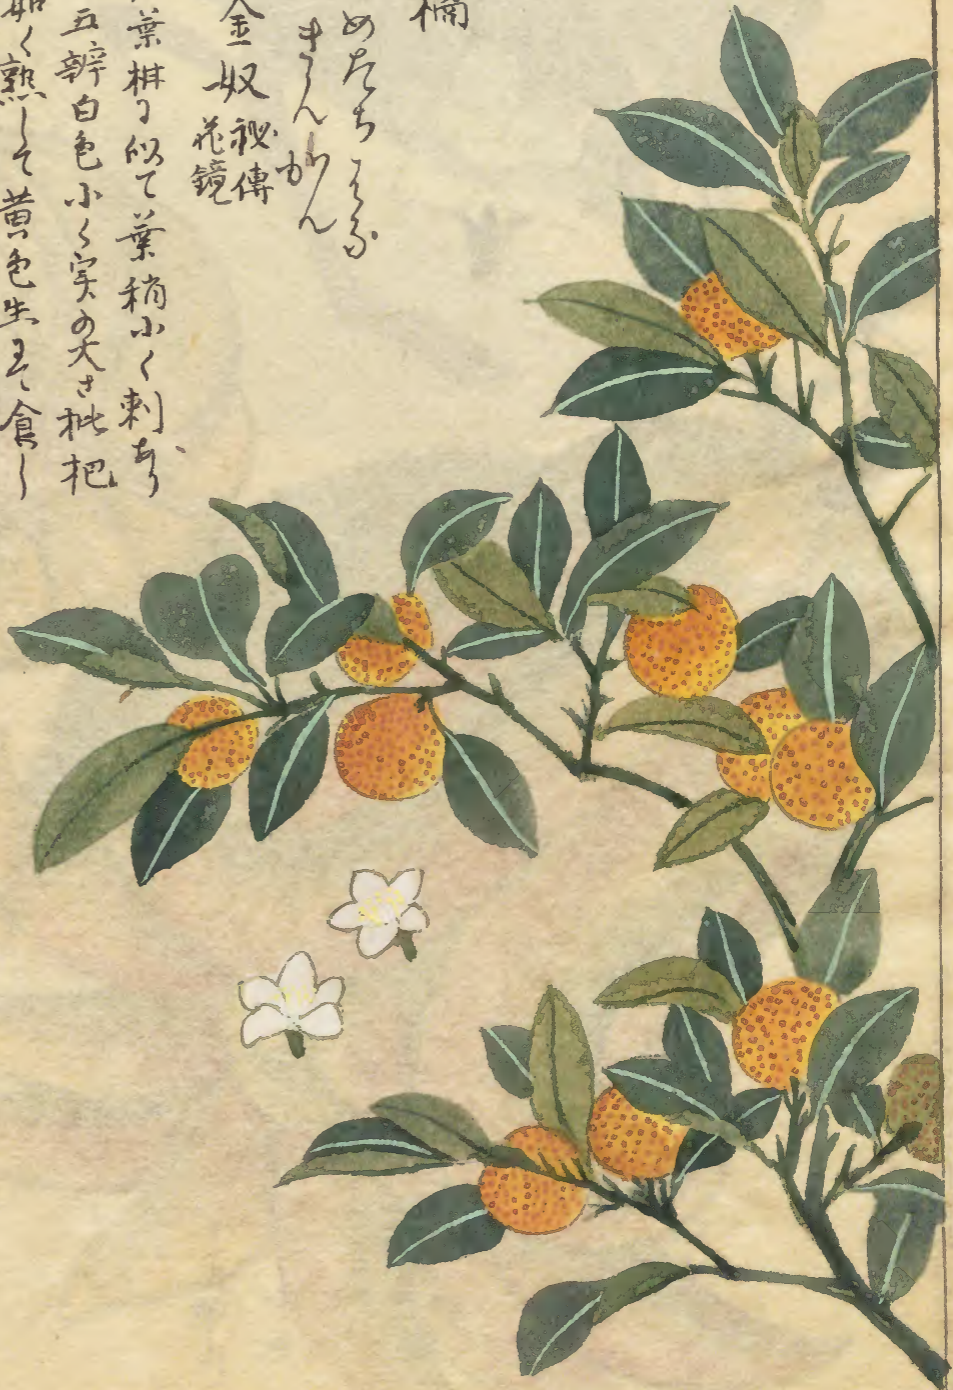 橘
めたちはな
きんかん
金奴 秘傳花鏡
葉枡ニ似て葉稍小く刺あり
五辨白色小く実の大さ枇杷
如く熟して黄色生にて食し